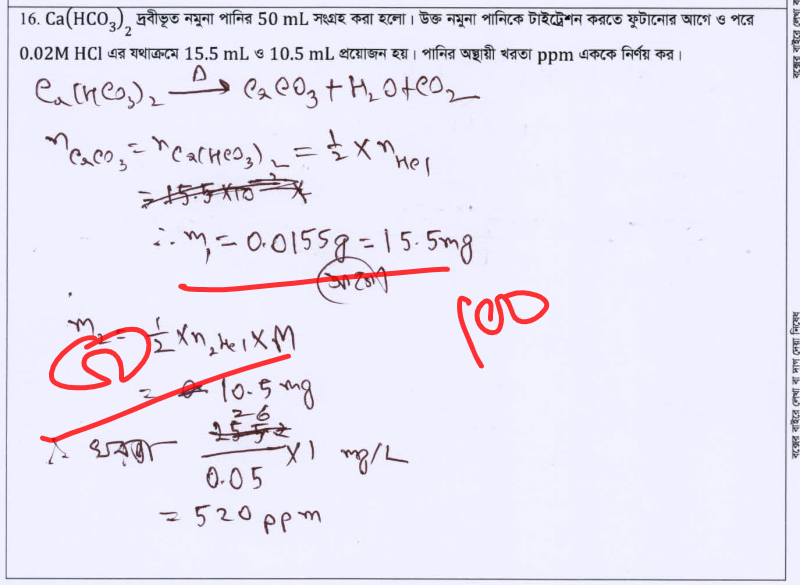 16. Ca(HCO₃)₂ দ্রবীভূত নমুনা পানির 50 mL সংগ্রহ করা হলো। উক্ত নমুনা পানিকে টাইট্রেশন করতে ফুটানোর আগে ও পরে
0.02M HCl এর যথাক্রমে 15.5 mL ও 10.5 mL প্রয়োজন হয়। পানির অস্থায়ী খরতা ppm এককে নির্ণয় কর।
Ca(HCO₃)₂ —Δ→ CaCO₃ + H₂O + CO₂
n CaCO₃ = n Ca(HCO₃)₂ = 1/2 × n HCl
= 15.5 × 10⁻³ ×
∴ m₁ = 0.0155g = 15.5mg
100
m₂ = 1/2 × n₂ HCl × M
= 10.5 mg
26
∴ খরতা /0.05 × 1 mg/L
= 520 ppm
বক্সের বাইরে লেখা বা দাগ দেয়া নিষেধ